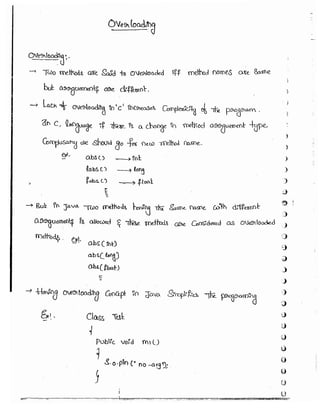 Overloading
Overloading:-
→ Two methods are Said to overloaded iff method names are Same
but arguments are different.
→ Lack of overloading in 'c' increases Complexity of the program.
In C, language if there is a change in method argument type,
Compulsory we should go for new method name.
Ex: abs() → int
labs() → long
fabs() → float
→ But in Java Two methods having the Same name with different
arguments is allowed & these methods are Considered as overloaded
methods. Ex: abs(int)
abs(long)
abs(float)
→ Having overloading Concept in Java Simplifies the programming
Ex:- Class Test
{
Public void m1()
{
S.o.pln("no-arg");
}